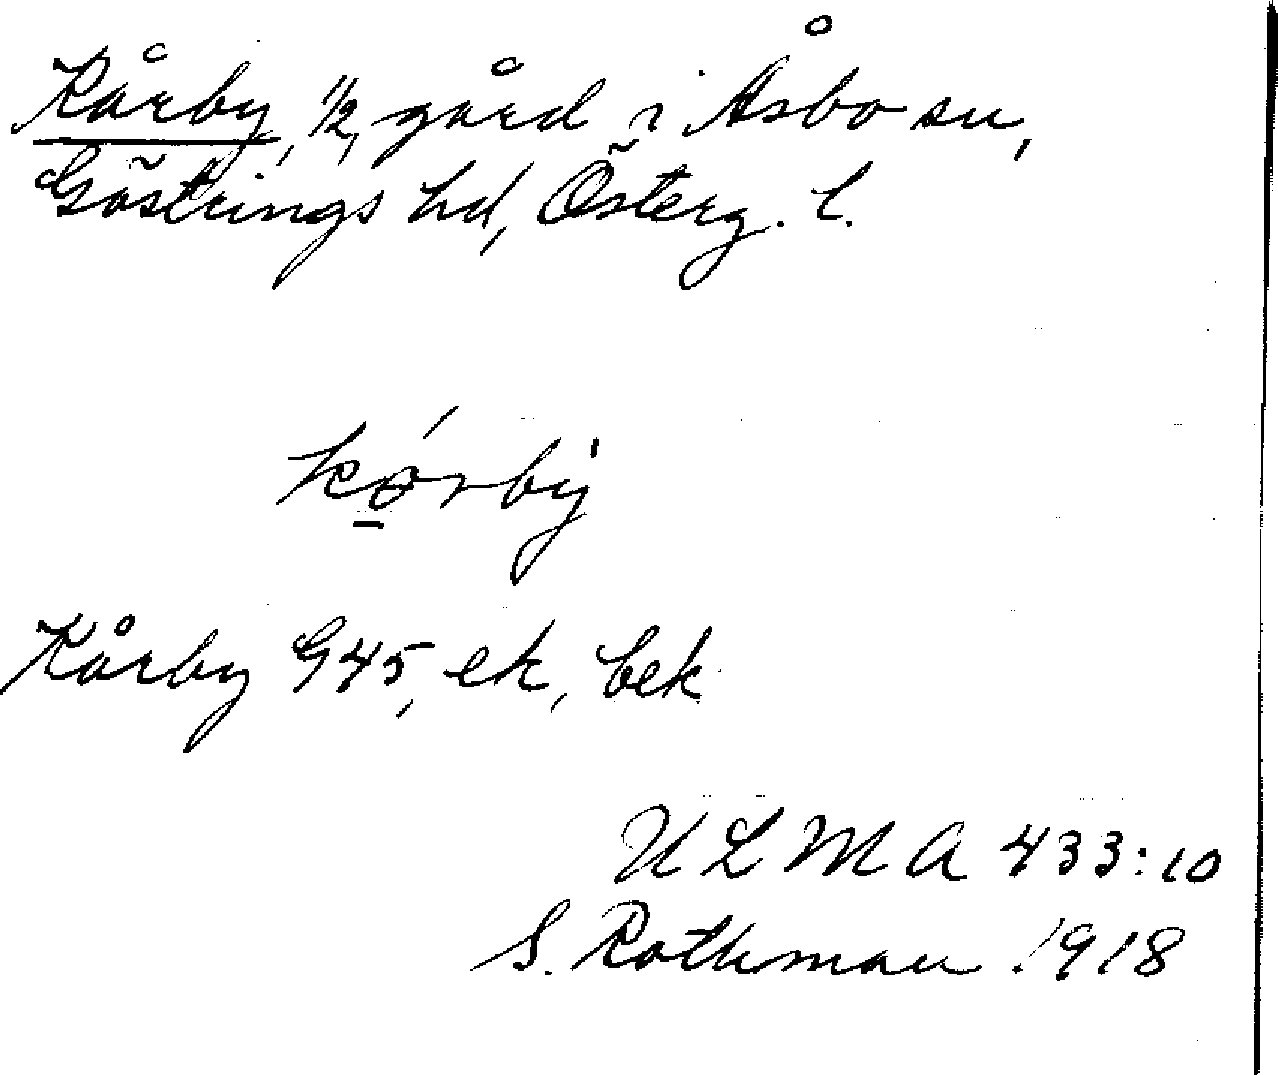 Kårby, 1/2 gård i Åsbo sn,
Göstrings hd, Österg. l.
kørby
Kårby G45, ek, bek
ULMA 433:10
S. Rothman 1918